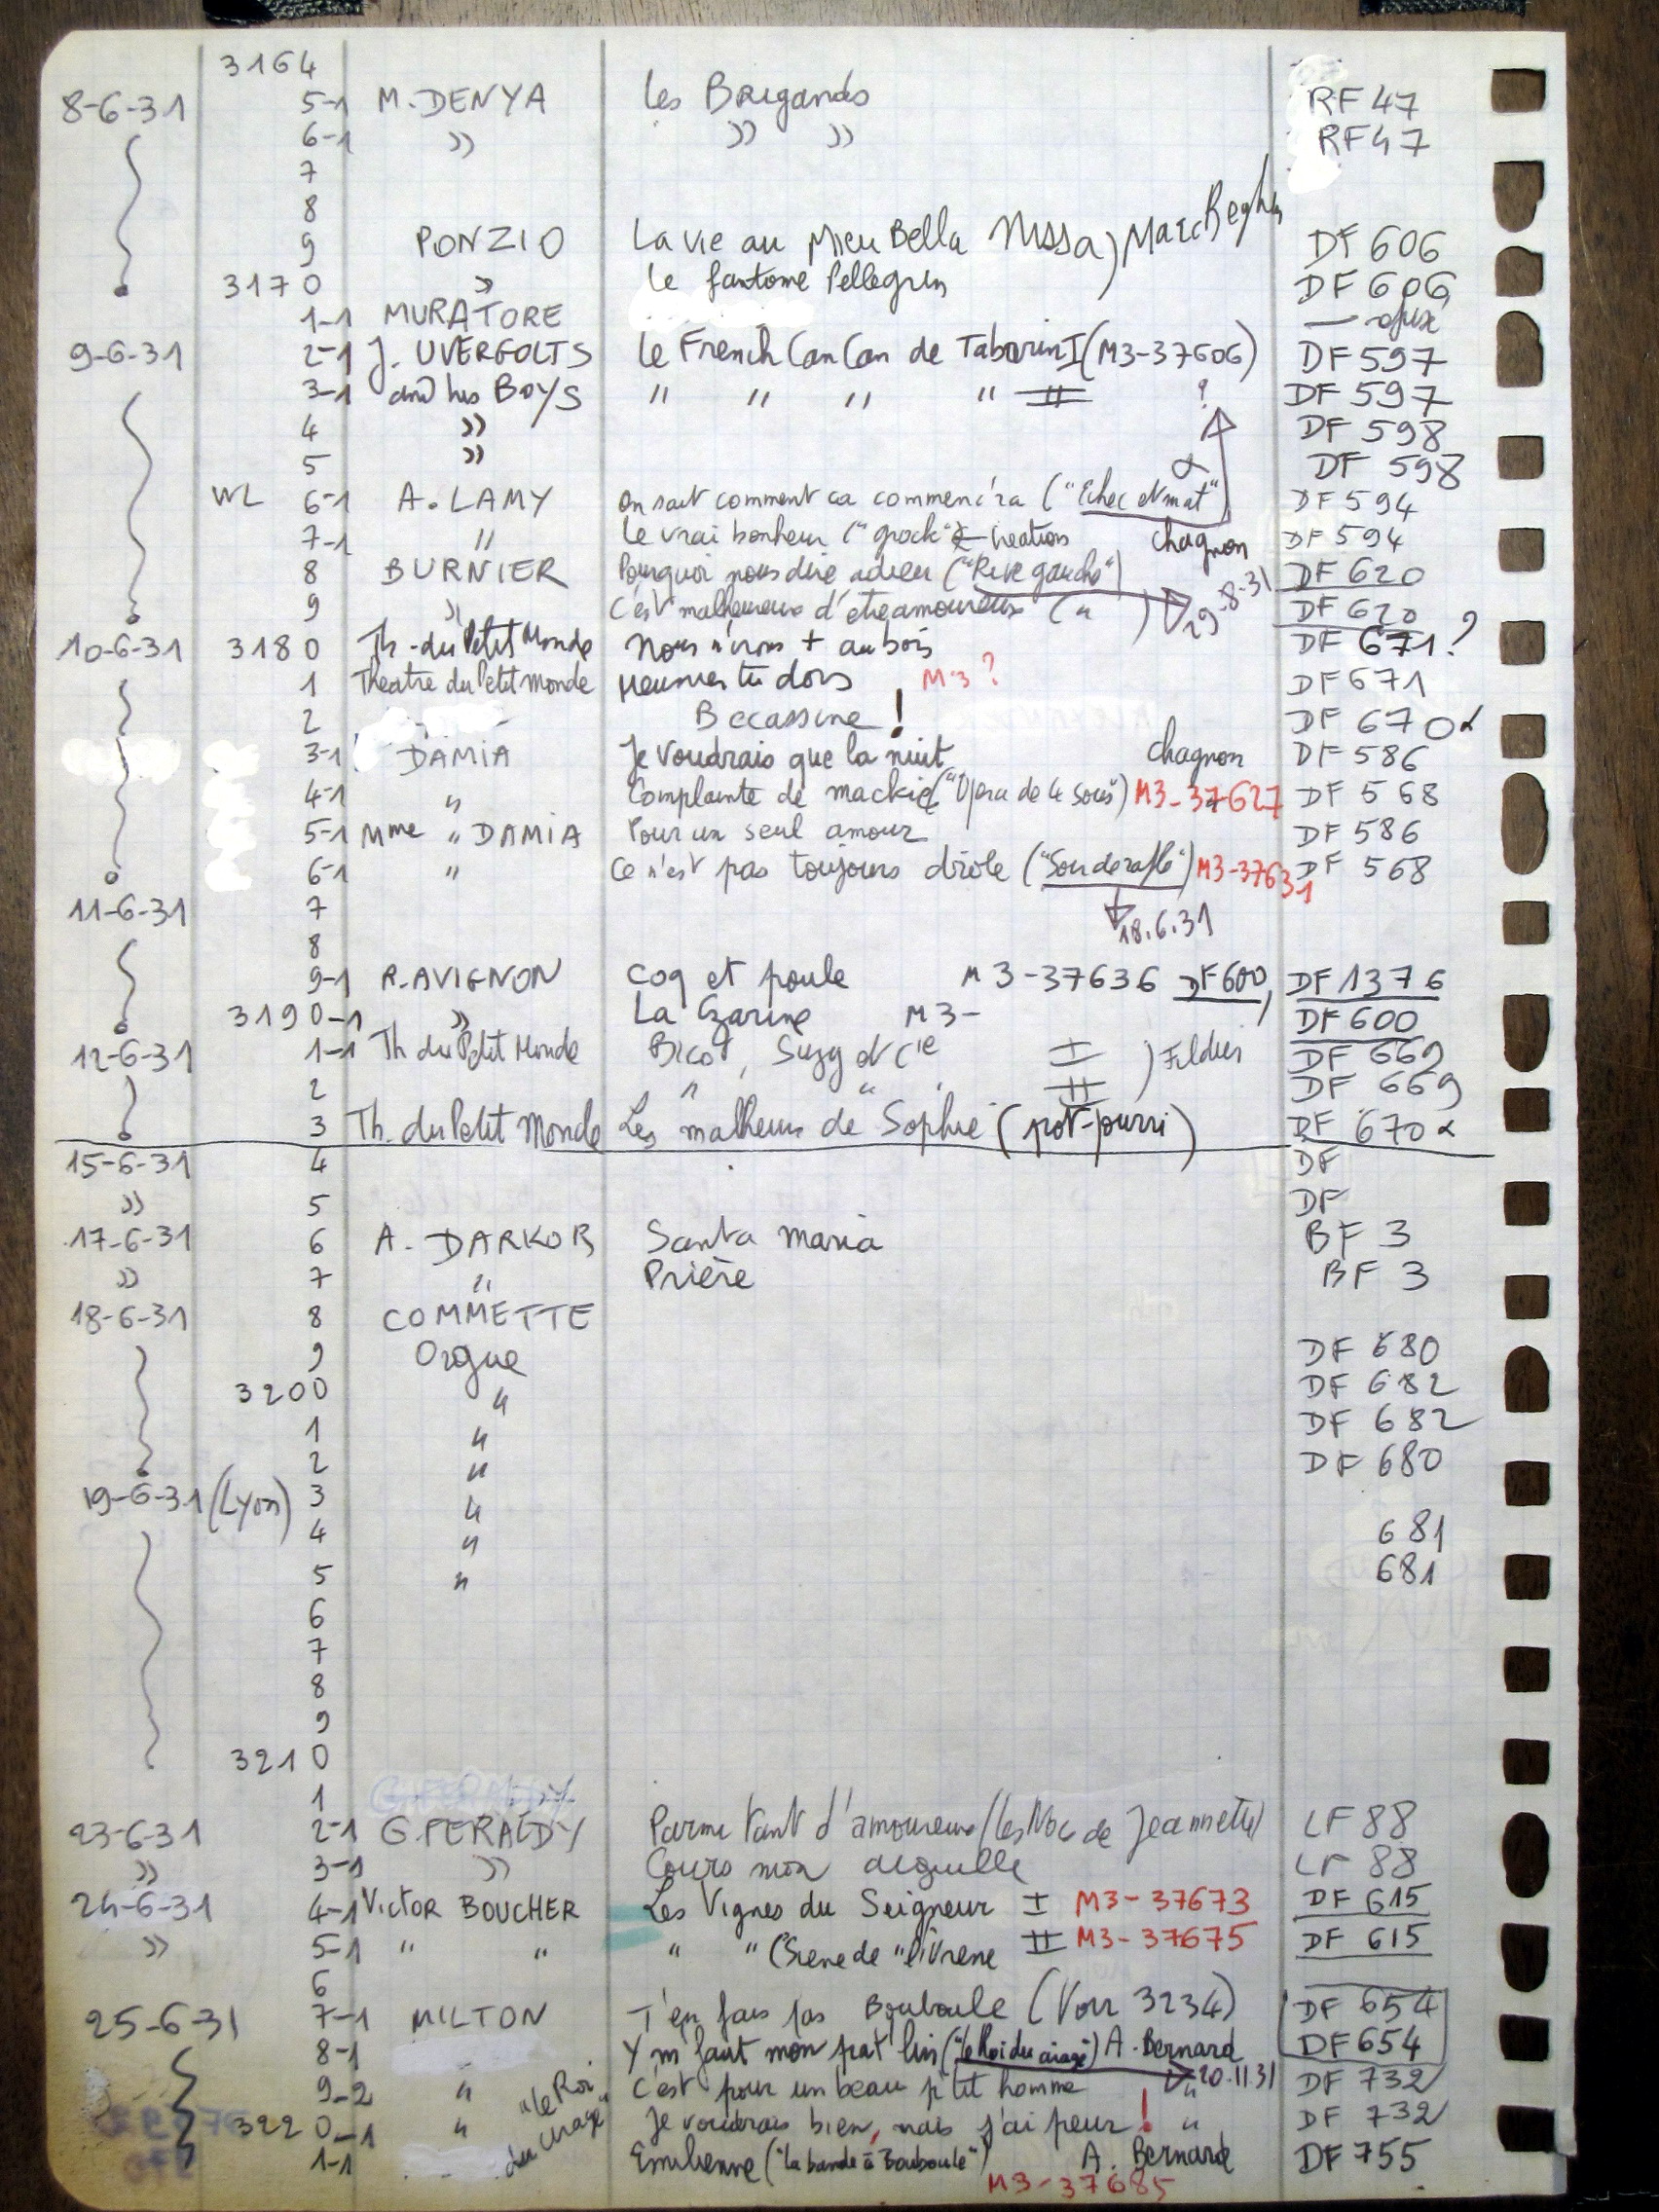 3164
8-6-31 5-1 M. DENYA Les Brigands RF 47
6-1 » » » RF 47
7
8
9 PONZIO La vie au Mieu Bella Nissa) Marc DF 606
3170 » Le fantome Pellegrin DF 606
1-1 MURATORE —
9-6-31 2-1 J. UVERGOLTS Le French Can Can de Tabarin I (M3-37606) DF 597
3-1 and his BOYS " " " " II ? DF 597
4 » DF 598
5 » DF 598
WL 6-1 A. LAMY On sait comment ca commenc'ra ("Echec et mat") α DF 594
7-1 " Le vrai bonheur ("grock" creation chagnon DF 594
8 BURNIER Pourquoi nous dire adieu ("Rive gauche") DF 620
9 » C'est malheureux d'etre amoureux ( " ) 29-8-31 DF 620
10-6-31 3180 Th. du Petit Monde Nous n'irons + au bois DF 671?
1 Theatre du Petit Monde Meunier tu dors M3? DF 671
2 Becassine! DF 670 α
3-1 DAMIA Je voudrais que la nuit chagnon DF 586
4-1 " Complainte de mackie ("Opera de 4 sous") M3-37627 DF 568
5-1 Mme " DAMIA Pour un seul amour DF 586
6-1 " Ce n'est pas toujours drôle ("Soir de rafle") M3-37631 DF 568
11-6-31 7
18.6.31
8
9-1 R. AVIGNON Coq et poule M3-37636 DF 600, DF 1376
3190-1 » La Czarine M3- DF 600
12-6-31 1-1 Th du Petit Monde Bicot, Suzy et Cie I ) DF 669
2 " " II DF 669
3 Th. du Petit Monde Les malheurs de Sophie (pot-pourri) DF 670 α
15-6-31 4 DF
» 5 DF
17-6-31 6 A. DARKOR Santa maria BF 3
» 7 " Prière BF 3
18-6-31 8 COMMETTE
9 Orgue DF 680
3200 " DF 682
1 " DF 682
2 " DF 680
19-6-31 (Lyon) 3 "
4 " 681
5 " 681
6
7
8
9
3210
1
23-6-31 2-1 G. FERALDY Parmi tant d'amoureux (les Noc de Jeannette) LF 88
» 3-1 » Cours mon aiguille LF 88
24-6-31 4-1 Victor BOUCHER Les Vignes du Seigneur I M3-37673 DF 615
» 5-1 " " " " (Scene de "l'Ivresse II M3-37675 DF 615
6
25-6-31 7-1 MILTON T'en fais pas Bouboule (Voir 3234) DF 654
8-1 Y m' faut mon pat'lin ("le Roi du cirage") A. Bernard DF 654
9-2 " C'est pour un beau p'tit homme 20.11.31 " DF 732
3220-1 " "le Roi du cirage" Je voudrais bien, mais j'ai peur! " DF 732
1-1 Emilienne ("la bande à Bouboule") A. Bernard DF 755
M3-37685